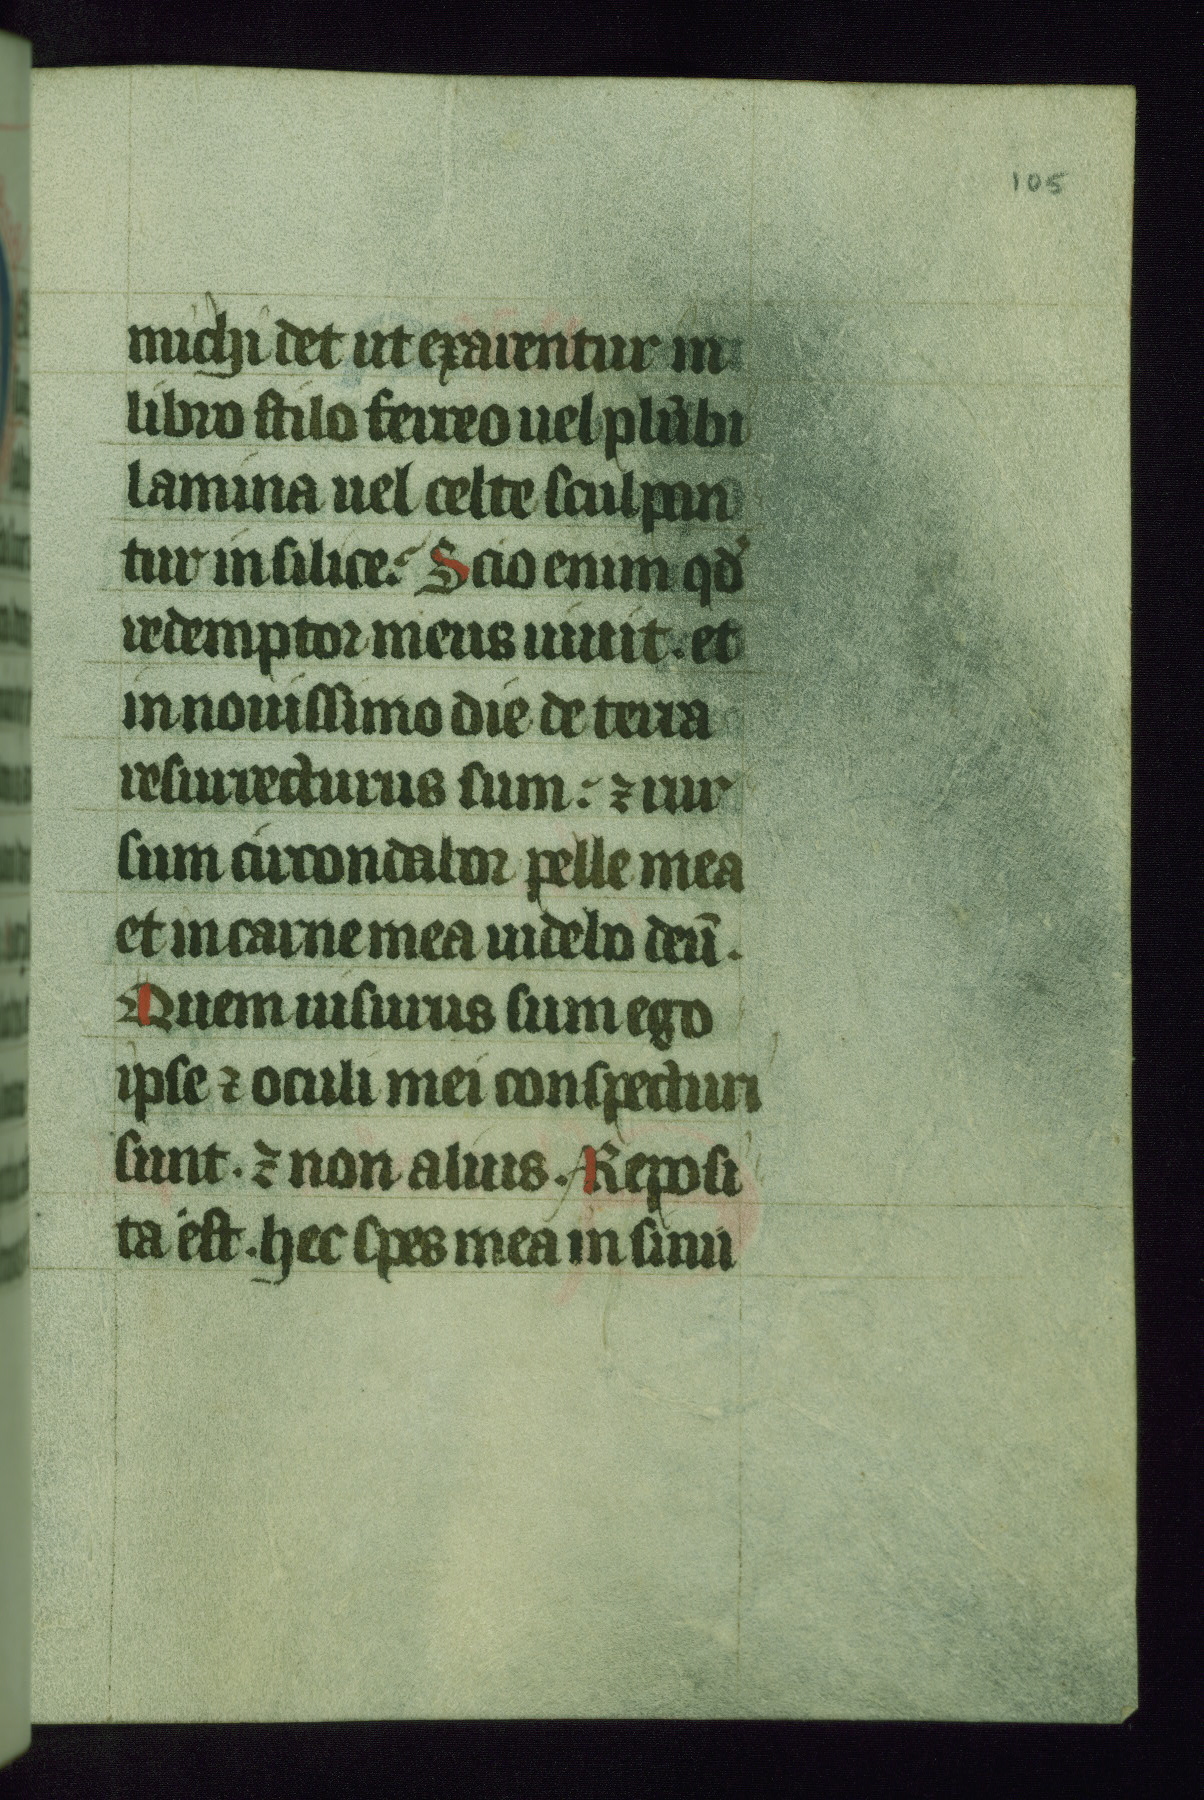 105
michi det ut exarentur in
libro stilo ferreo uel plūbi
lamina uel celte sculpan
tur in silice. Scio enim qd'
redemptor meus uiuit. et
in nouissimo die de terra
resurrecturus sum. ⁊ rur
sum circondabor pelle mea
et in carne mea uidebo deū.
Quem uisurus sum ego
ipse ⁊ oculi mei conspecturi
sunt. ⁊ non alius. Reposi
ta est. hec spes mea in sinu